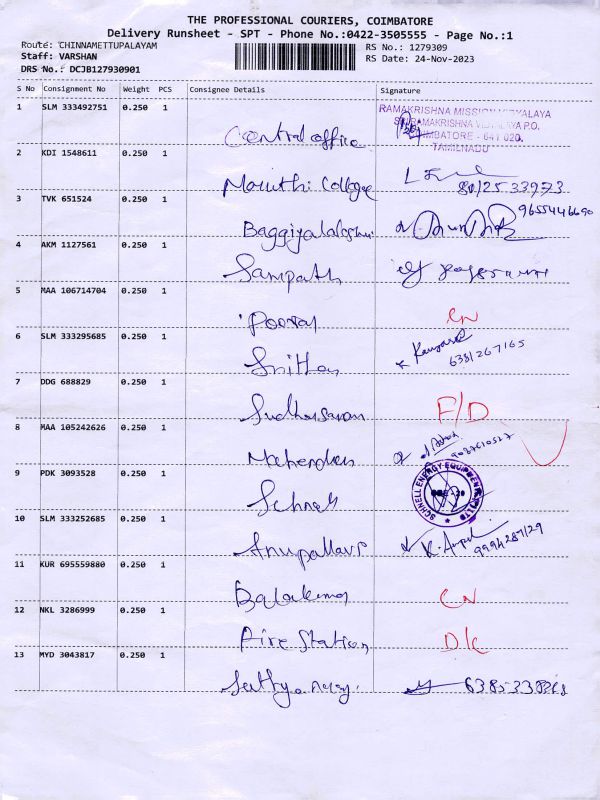 THE PROFESSIONAL COURIERS, COIMBATORE
Delivery Runsheet - SPT - Phone No.:0422-3505555 - Page No.:1
Route: CHINNAMETTUPALAYAM
RS No.: 1279309
Staff: VARSHAN
RS Date: 24-Nov-2023
DRS No.: DCJB127930901
S No Consignment No Weight PCS Consignee Details Signature
1 SLM 333492751 0.250 1 Central office
RAMAKRISHNA MISSION VIDYALAYA
SRI RAMAKRISHNA VIDYALAYA P.O.
COIMBATORE - 641 020.
TAMILNADU
2 KDI 1548611 0.250 1 Maruthi College
3 TVK 651524 0.250 1 9655446690
4 AKM 1127561 0.250 1 Sampath
5 MAA 106714704 0.250 1 CN
6 SLM 333295685 0.250 1 6381267165
7 DDG 688829 0.250 1 Sudharsanan F/D
8 MAA 105242626 0.250 1
9 PDK 3093528 0.250 1 Schnell
SCHNELL ENERGY EQUIPMENT PVT LTD
10 SLM 333252685 0.250 1 Anupallavi 9994287129
11 KUR 695559880 0.250 1 Balakumar CN
12 NKL 3286999 0.250 1 Fire Station D/C
13 MYD 3043817 0.250 1